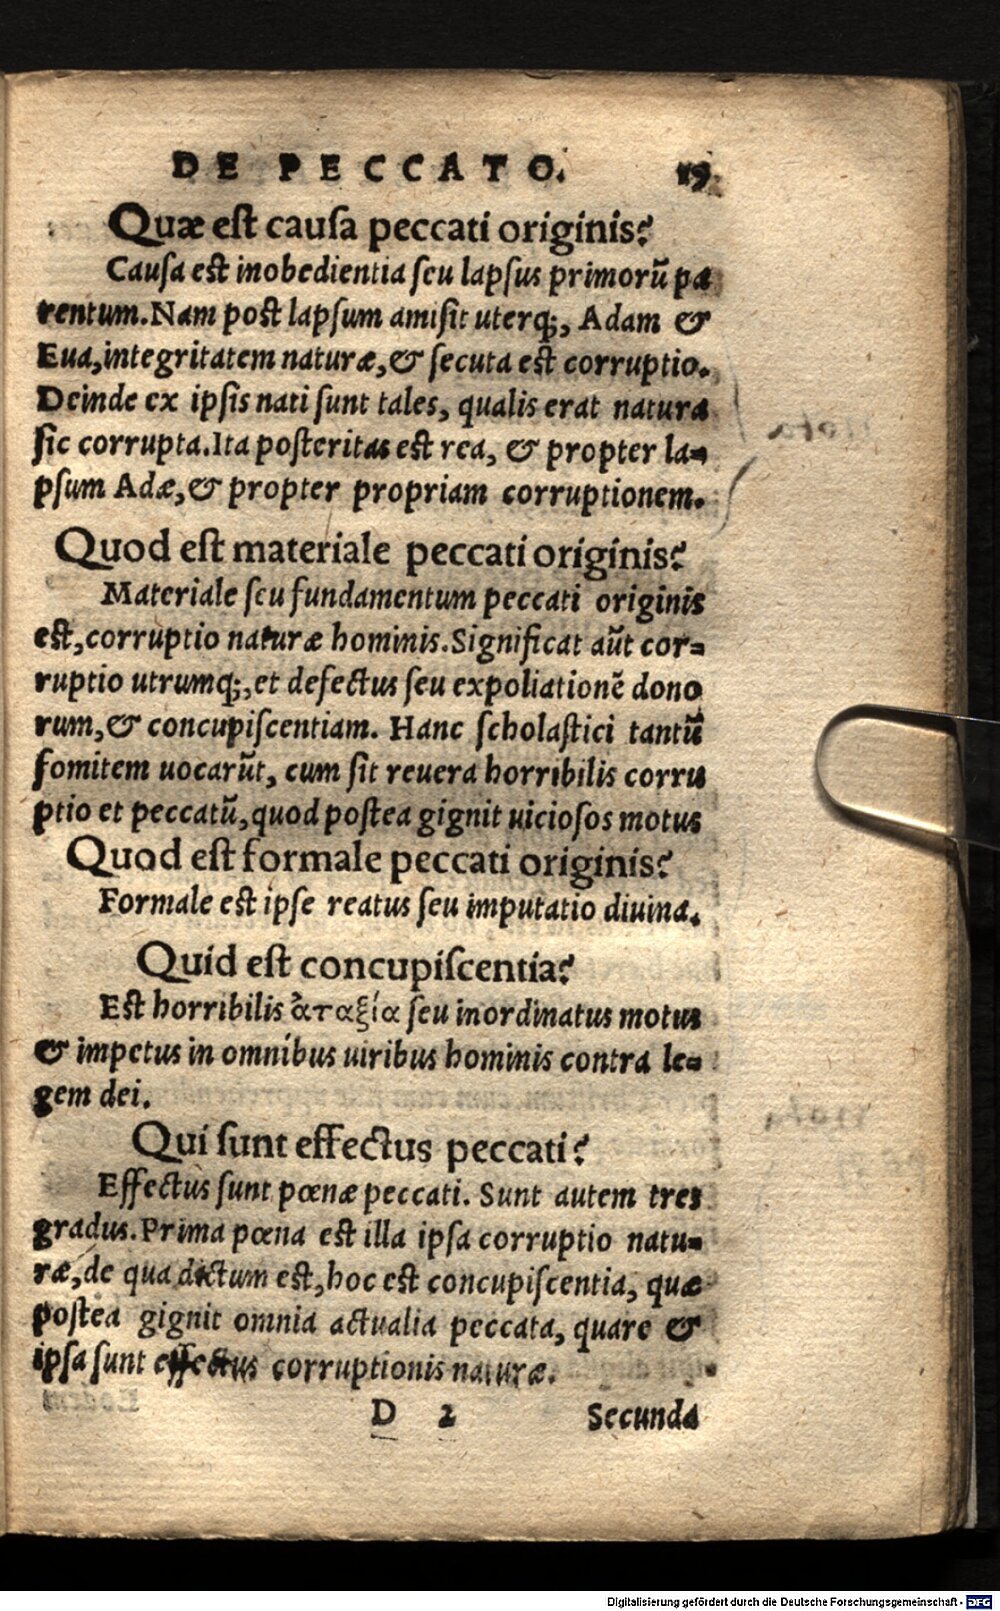 DE PECCATO. 19
Quæ est cauſa peccati originis?
Cauſa est inobedientia ſeu lapſus primorũ pa
rentum. Nam post lapſum amiſit uterq;, Adam &
Eua, integritatem naturæ, & ſecuta est corruptio.
Deinde ex ipſis nati ſunt tales, qualis erat natura
ſic corrupta. Ita poſteritas est rea, & propter la-
pſum Adæ, & propter propriam corruptionem.
Quod eſt materiale peccati originis?
Materiale ſeu fundamentum peccati originis
est, corruptio naturæ hominis. Significat aũt cor-
ruptio utrumq;, et defectus ſeu expoliationẽ dono
rum, & concupiſcentiam. Hanc ſcholaſtici tantũ
fomitem uocarũt, cum ſit reuera horribilis corru
ptio et peccatũ, quod poſtea gignit uicioſos motus
Quod eſt formale peccati originis?
Formale est ipſe reatus ſeu imputatio diuina.
Quid eſt concupiſcentia?
Est horribilis ἀταξία ſeu inordinatus motus
& impetus in omnibus uiribus hominis contra le-
gem dei.
Qui ſunt effectus peccati?
Effectus ſunt pœnæ peccati. Sunt autem tres
gradus. Prima pœna est illa ipſa corruptio natu-
ræ, de qua dictum est, hoc est concupiſcentia, quæ
poſtea gignit omnia actualia peccata, quare &
ipſa ſunt effectus corruptionis naturæ.
D 2 Secunda
Digitalisierung gefördert durch die Deutsche Forschungsgemeinschaft - DFG